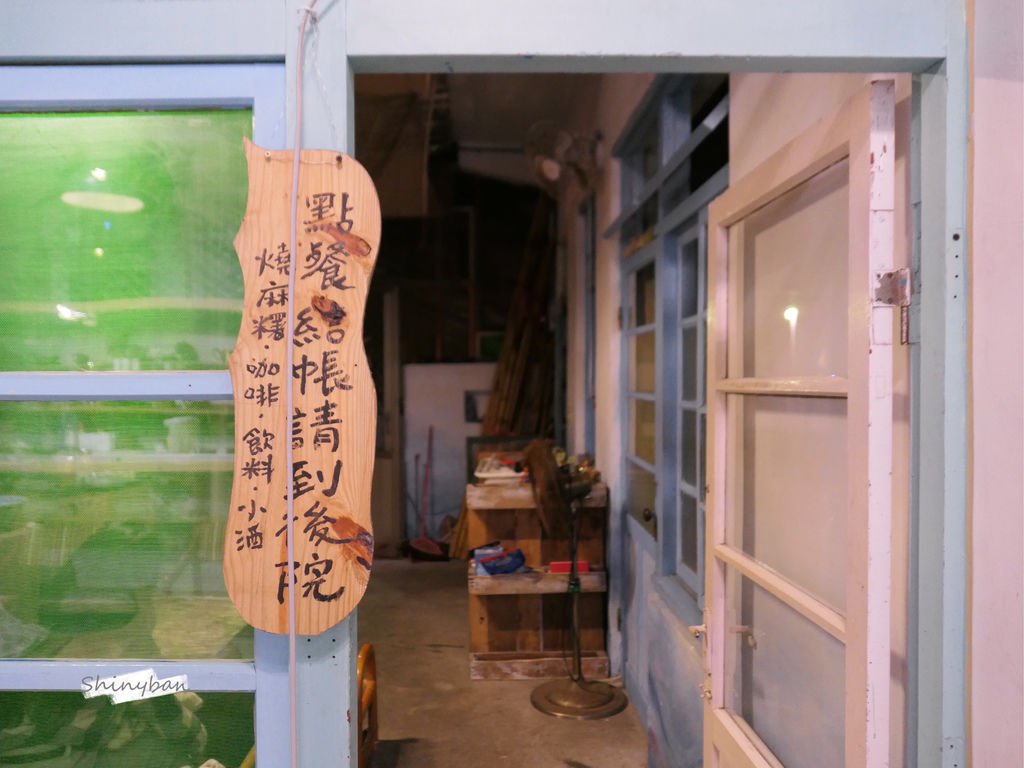 點餐 結帳請到後院
燒麻糬·咖啡·飲料·小酒
Shinyban